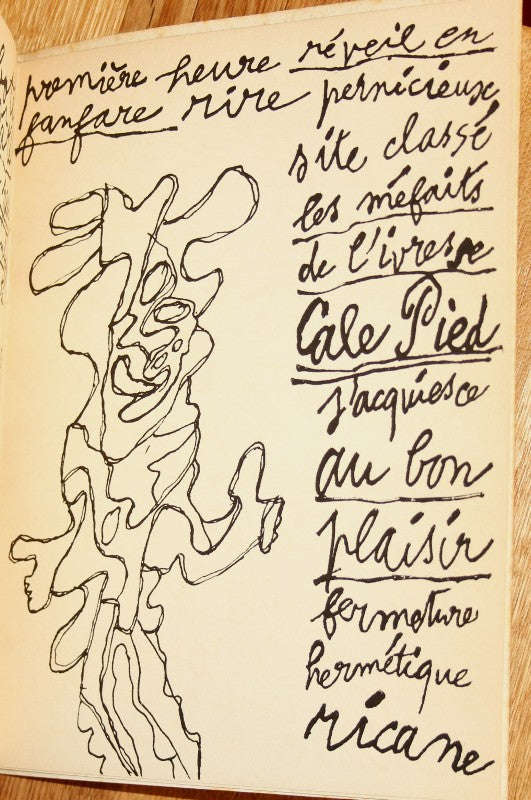 première heure réveil en
fanfare rire pernicieux
site classé
les méfaits
de l'ivresse
Cale Pied
j'acquiesce
au bon
plaisir
fermeture
hermétique
ricane